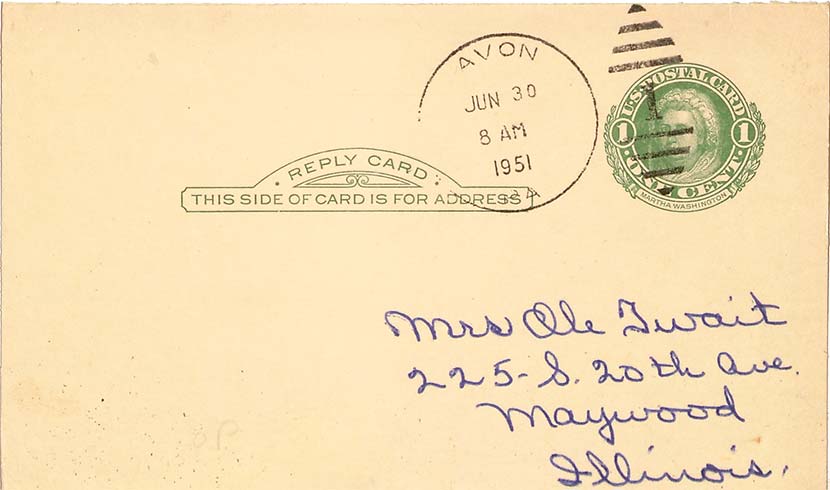 AVON
JUN 30
8 AM
1951
U.S. POSTAL CARD
1 1
ONE CENT
MARTHA WASHINGTON
REPLY CARD
THIS SIDE OF CARD IS FOR ADDRESS
Mrs Ole Twait
225-S. 20th Ave.
Maywood
Illinois.